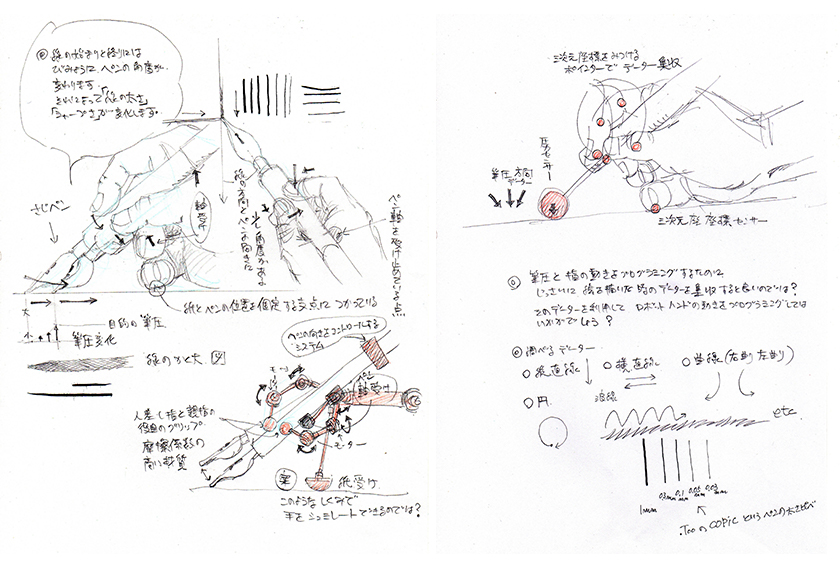 線の始まりと終りには
びみょうに、ペンの角度が
変わります
それによって「線の太さ」
「シャープさ」が変化します。
さじペン
軸受け
線の方向とペンの向きに
少し角度がある
ペン軸を受け止めている点
紙とペンの位置を固定する支点につかっている
目的の筆圧
筆圧変化
大
小
線のかど大 図
ペンの向きをコントロールする
システム
モーター
軸受け
人差し指と親指の
役目のグリップ
摩擦係数の
高い材質
モーター
案
紙受け
このようなしくみで
手をシュミレートできるのでは?
三次元座標をみつける
ポインターでデーター集収
圧センサー
筆圧 方向
データー
三次元座標センサー
◎ 筆圧と指の動きをプログラミングするために
じっさいに、線を描いた時のデーターを集収すると良いのでは?
そのデーターを利用してロボットハンドの動きをプログラミングしては
いかがでしょう?
◎ 調べるデーター
○ 縦直線 ○ 横直線 ○ 曲線(右劃り 左劃り)
○ 円 波線
etc.
1mm
0.1mm
0.05mm
0.03mm
.Too の COPIC というペンの太さだと